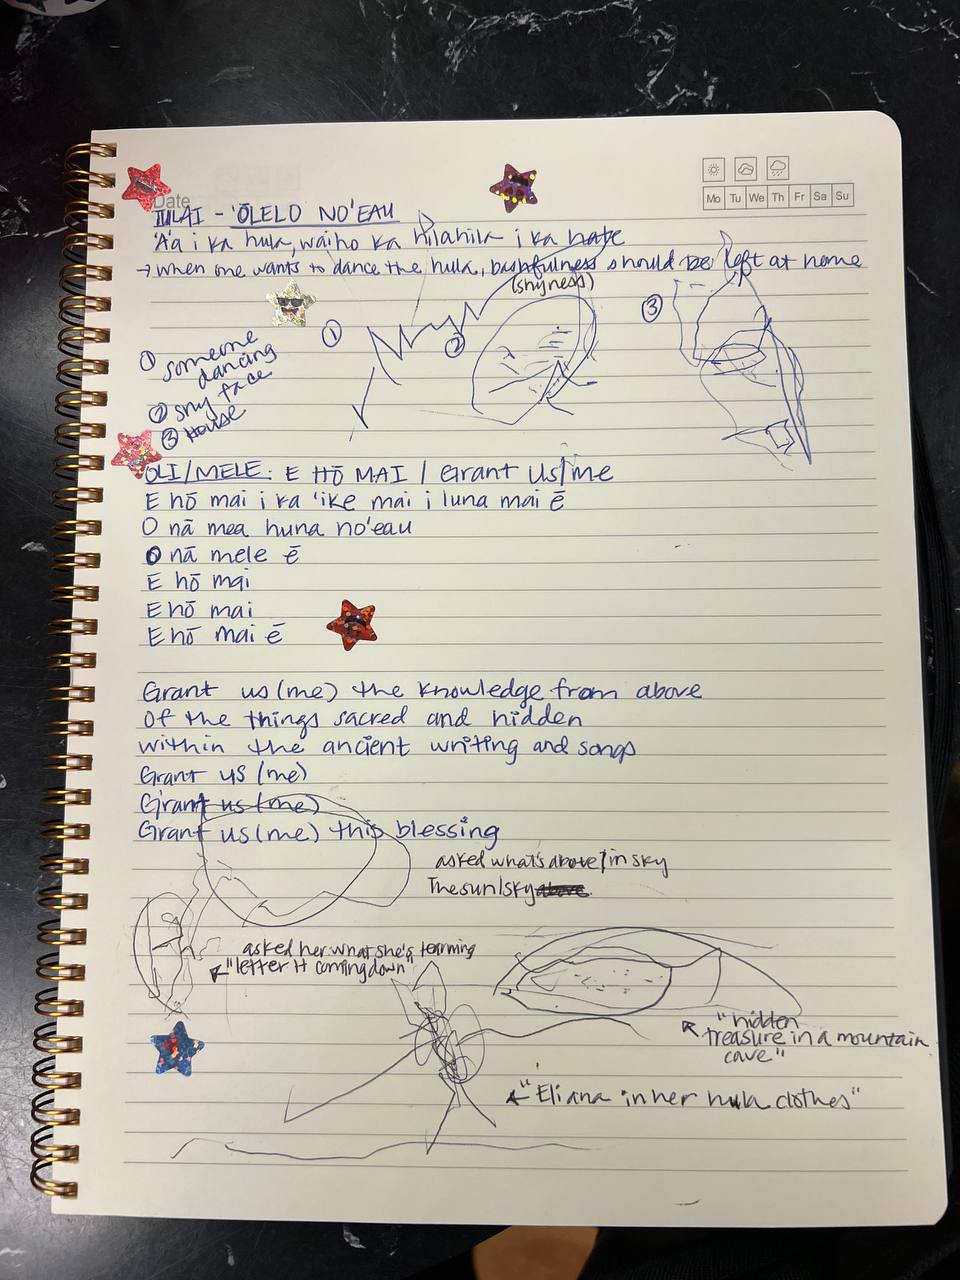 Date
Mo Tu We Th Fr Sa Su
IULAI - 'ŌLELO NO'EAU
'A'a i ka hula, waiho ka hilahila i ka hale
→ when one wants to dance the hula, bashfulness should be left at home
(shyness)
① someone dancing
② shy face
③ House
①
②
③
OLI/MELE: E HŌ MAI / Grant Us/me
E hō mai i ka 'ike mai i luna mai ē
O nā mea huna no'eau
O nā mele ē
E hō mai
E hō mai
E hō mai ē
Grant us (me) the knowledge from above
Of the things sacred and hidden
within the ancient writing and songs
Grant us (me)
Grant us (me)
Grant us (me) this blessing
asked what's above/in sky
The sun/sky above
asked her what she's learning
"letter H coming down"
"hidden treasure in a mountain cave"
"Eliana in her hula clothes"